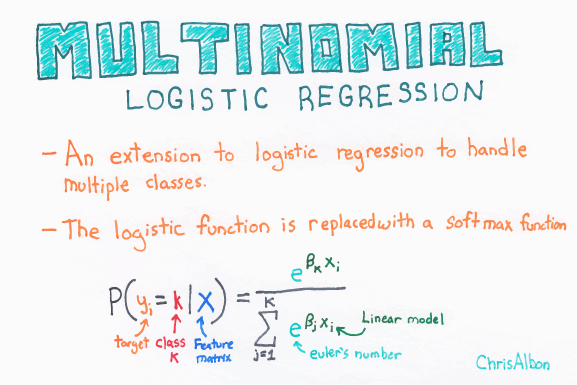 MULTINOMIAL
LOGISTIC REGRESSION
- An extension to logistic regression to handle
multiple classes.
- The logistic function is replaced with a softmax function
P(yᵢ = k | X) = e^{βₖxᵢ} / Σ_{j=1}^{K} e^{βⱼxᵢ}
target
class
K
Feature
matrix
Linear model
euler's number
ChrisAlbon